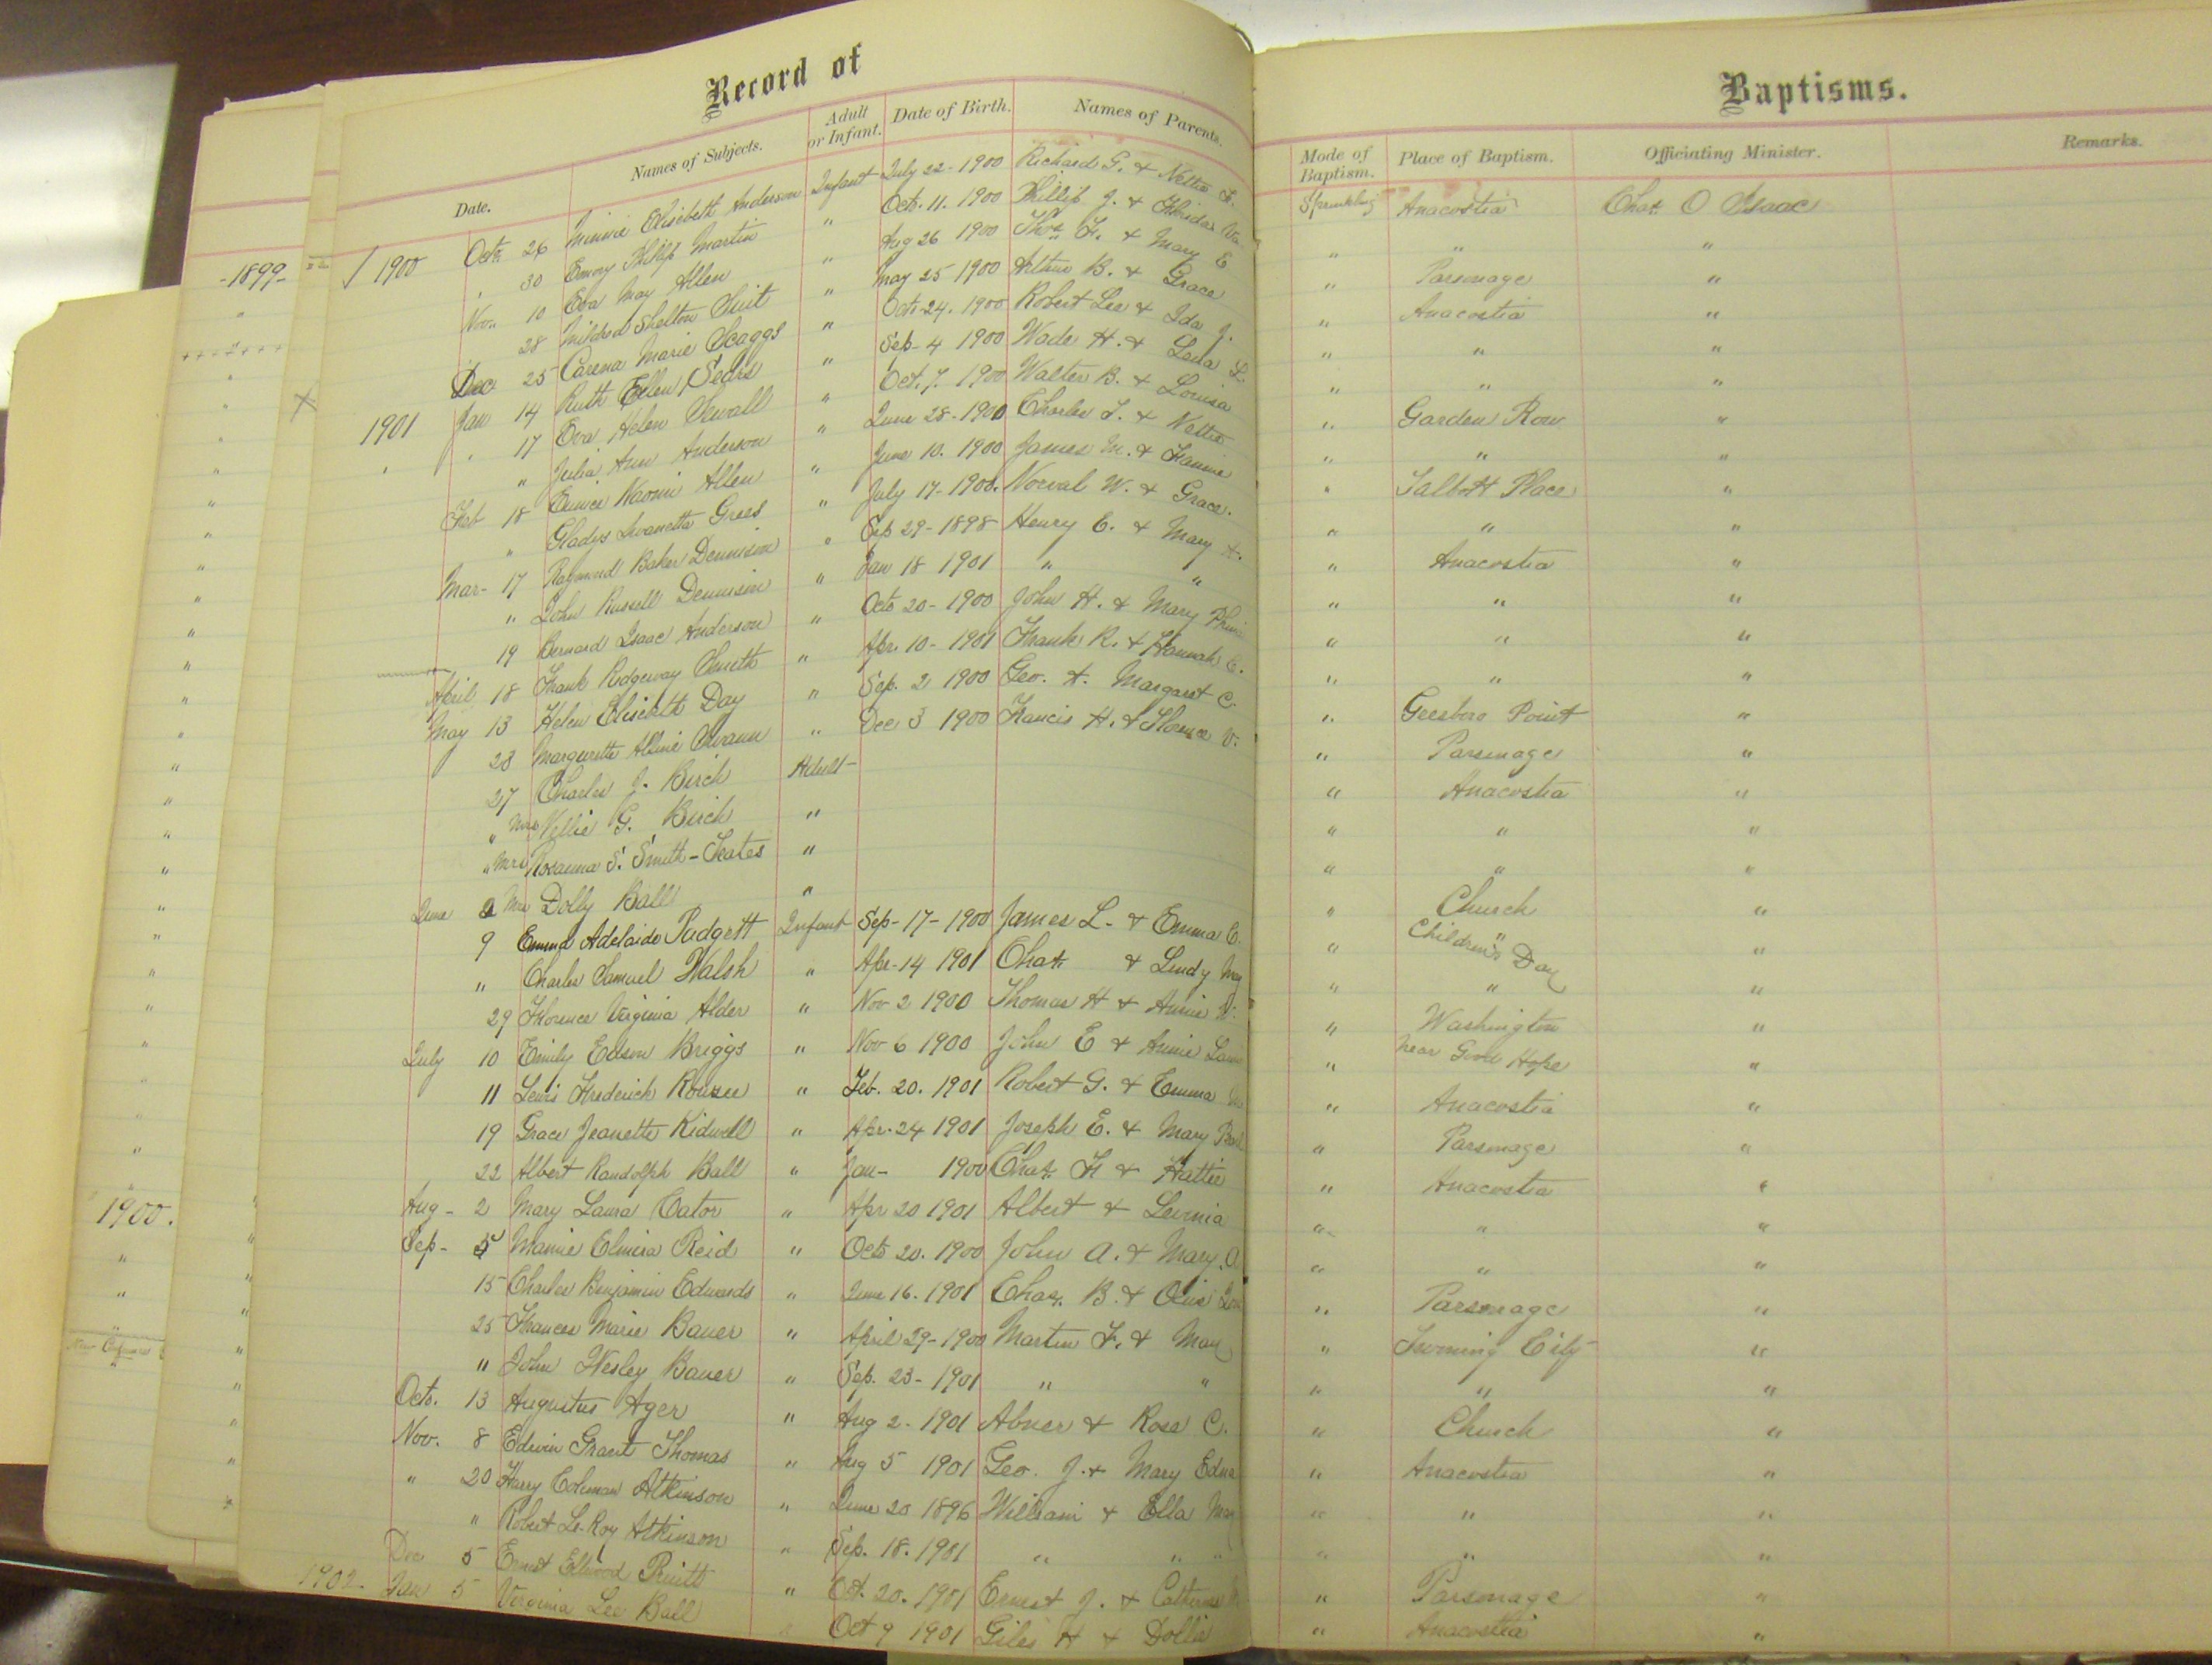 Record of Baptisms.
Date. Names of Subjects. Adult or Infant. Date of Birth. Names of Parents. Mode of Baptism. Place of Baptism. Officiating Minister. Remarks.
1900 Oct. 26 Minnie Elisebeth Anderson Infant July 22-1900 Richard G. & Nettie L. Sprinkling Anacostia Chas. O Isaac
" 30 Emory Philip Martin " Oct. 11. 1900 Phillip J. & " " "
Nov. 10 Eva May Allen " Aug 26 1900 Thos. F. & Mary E " Parsonage "
28 Mildred Shelton Suit " May 25 1900 Arthur B. & Grace " Anacostia "
Dec 25 Carena Marie Scaggs " Oct. 24. 1900 Robert Lee & Ida J. " " "
1901 Jan 14 Ruth Ellen Sears " Sep-4 1900 Wade H. & Lena L. " " "
" " 17 Eva Helen Sewall " Oct. 7. 1900 Walter B. & Louisa " Garden Row "
" Julia Ann Anderson " June 28-1900 Charles T. & Nettie " " "
Feb 18 Eunice Naomi Allen " June 10. 1900 James M. & Fannie " Talbott Place "
" Gladys Grees " July 17-1900. Norval W. & Grace. " " "
Mar- 17 Raymond Baker Dennison " Sep 29-1898 Henry E. & Mary A. " Anacostia "
" John Russell Dennison " Jan 18 1901 " " " " "
19 Bernard Isaac Anderson " Oct 20-1900 John H. & Mary " " "
April 18 Frank Ridgeway Smith " Apr. 10-1901 Frank R. & Hannah E. " " "
May 13 Helen Elisebeth Day " Sep. 2 1900 Geo. A. Margaret C. " Geesboro Point "
23 Marguerette Swann " Dec 3 1900 Francis H. & V. " Parsonage "
27 Charles J. Birch Adult " Anacostia "
" Mrs Nellie G. Birch " " " "
" Mrs Rosanna S. Smith-Teates " " " "
June Mrs Dolly Ball " " Church "
9 Emma Adelaide Padgett Infant Sep-17-1900 James L. & Emma C. " " Children's Day "
" Charles Samuel Walsh " Apr-14 1901 Chas. & Lindy May " " "
29 Florence Virginia Alder " Nov 2 1900 Thomas H & Annie " Washington "
July 10 Emily Edson Briggs " Nov 6 1900 John E & Annie " near Good Hope "
11 Lewis Frederick Rouzee " Feb. 20. 1901 Robert G. & Emma " Anacostia "
19 Grace Jeanette Kidwell " Apr. 24 1901 Joseph E. & Mary " Parsonage "
22 Albert Randolph Ball " Jan- 1900 Chas. F. & Hattie " Anacostia "
Aug- 2 Mary Laura Cator " Apr 20 1901 Albert & " " "
Sep- 5 Mamie Elmira Reid " Oct 20. 1900 John A. & Mary. A " " "
15 Charles Benjamin Edwards " June 16. 1901 Chas. B. & " Parsonage "
25 Frances Marie Bauer " April 29-1900 Martin F. & May " Twining City "
" John Wesley Bauer " Sep. 23-1901 " " " " "
Oct. 13 Augustus Ager " Aug 2. 1901 Abner & Rose C. " Church "
Nov. 8 Edwin Grant Thomas " Aug 5 1901 Geo. J. & Mary Edna " Anacostia "
" 20 Harry Coleman Atkinson " June 20 1896 William & Ella May " " "
" Robert Le-Roy Atkinson " Sep. 18. 1901 " " " " " "
Dec 5 Ernest Ellwood Pruitt " Oct. 20. 1901 Ernest J. & Catherine " Parsonage "
1902. Jan 5 Virginia Lee Ball " Oct 9 1901 Giles H & Dollie " Anacostia "
-1899-
1900.